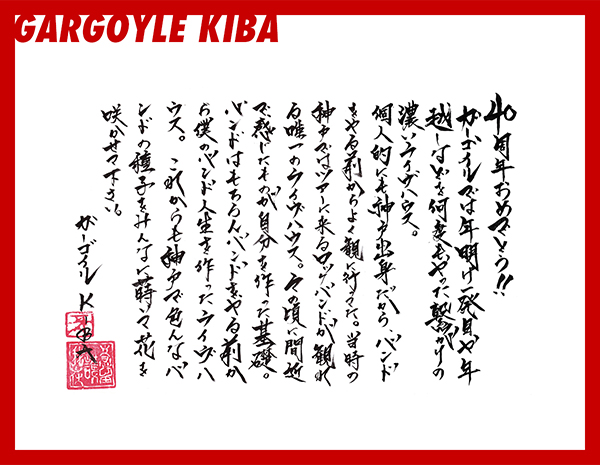 GARGOYLE KIBA
40周年おめでとう!!
ガーゴイルでは年明け一発目や年
越しなどを何度もやった繋がりの
濃いライヴハウス。
個人的にも神戸出身だから、バンド
をやる前からよく観に行ってた。当時の
神戸ではツアーに来るロックバンドが観れ
る唯一のライヴハウス。その頃に間近
で感じたものが自分を作った基礎。
バンドはもちろんバンドをやる前か
ら僕のバンド人生を作ったライヴハ
ウス。これからも神戸で色んなバ
ンドの種子をみんなに蒔いて花を
咲かせて下さい。
ガーゴイル KIBA